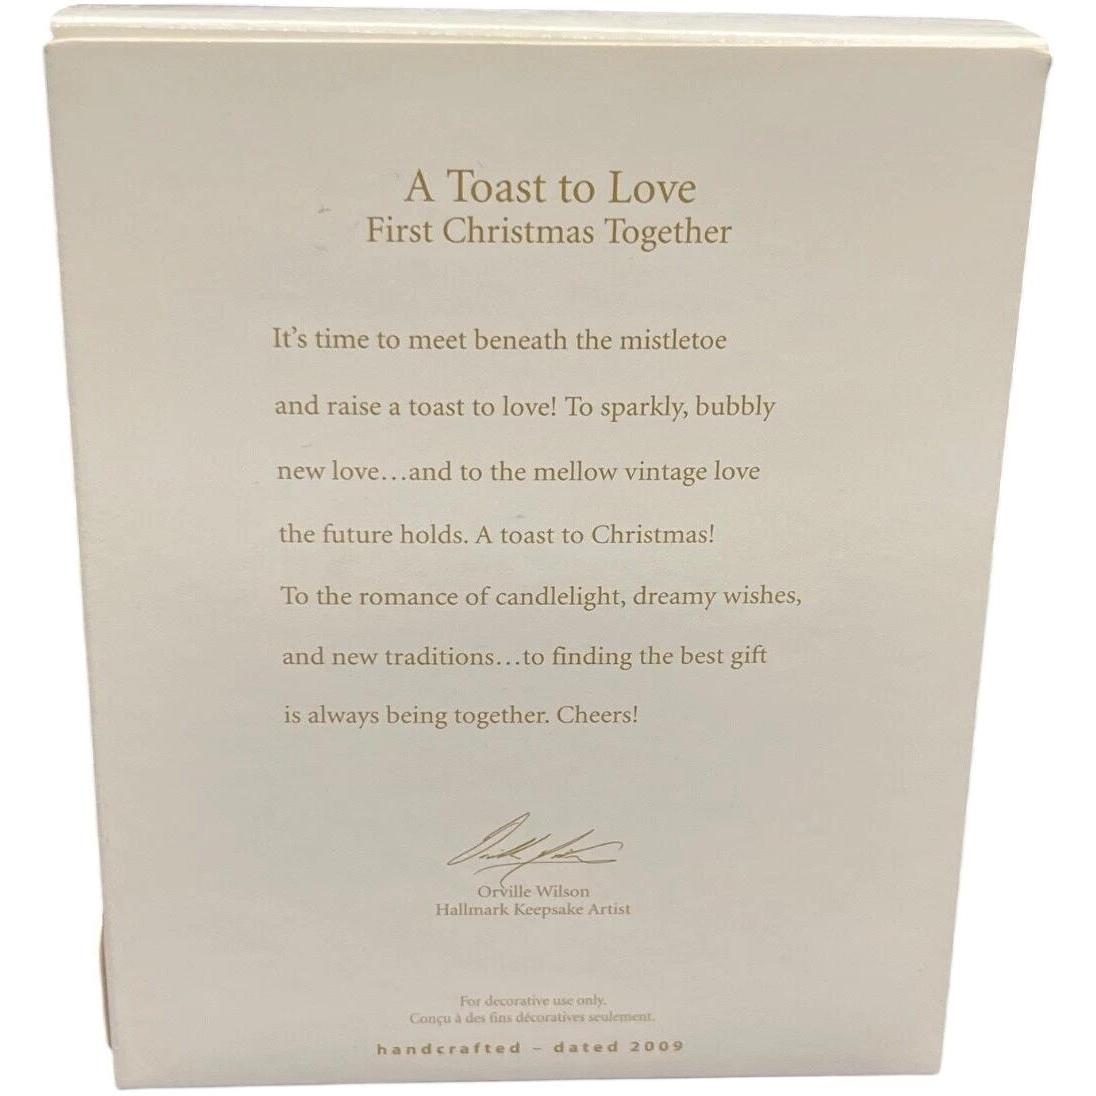 A Toast to Love
First Christmas Together
It's time to meet beneath the mistletoe
and raise a toast to love! To sparkly, bubbly
new love...and to the mellow vintage love
the future holds. A toast to Christmas!
To the romance of candlelight, dreamy wishes,
and new traditions...to finding the best gift
is always being together. Cheers!
Orville Wilson
Orville Wilson
Hallmark Keepsake Artist
For decorative use only.
Conçu à des fins décoratives seulement.
handcrafted – dated 2009